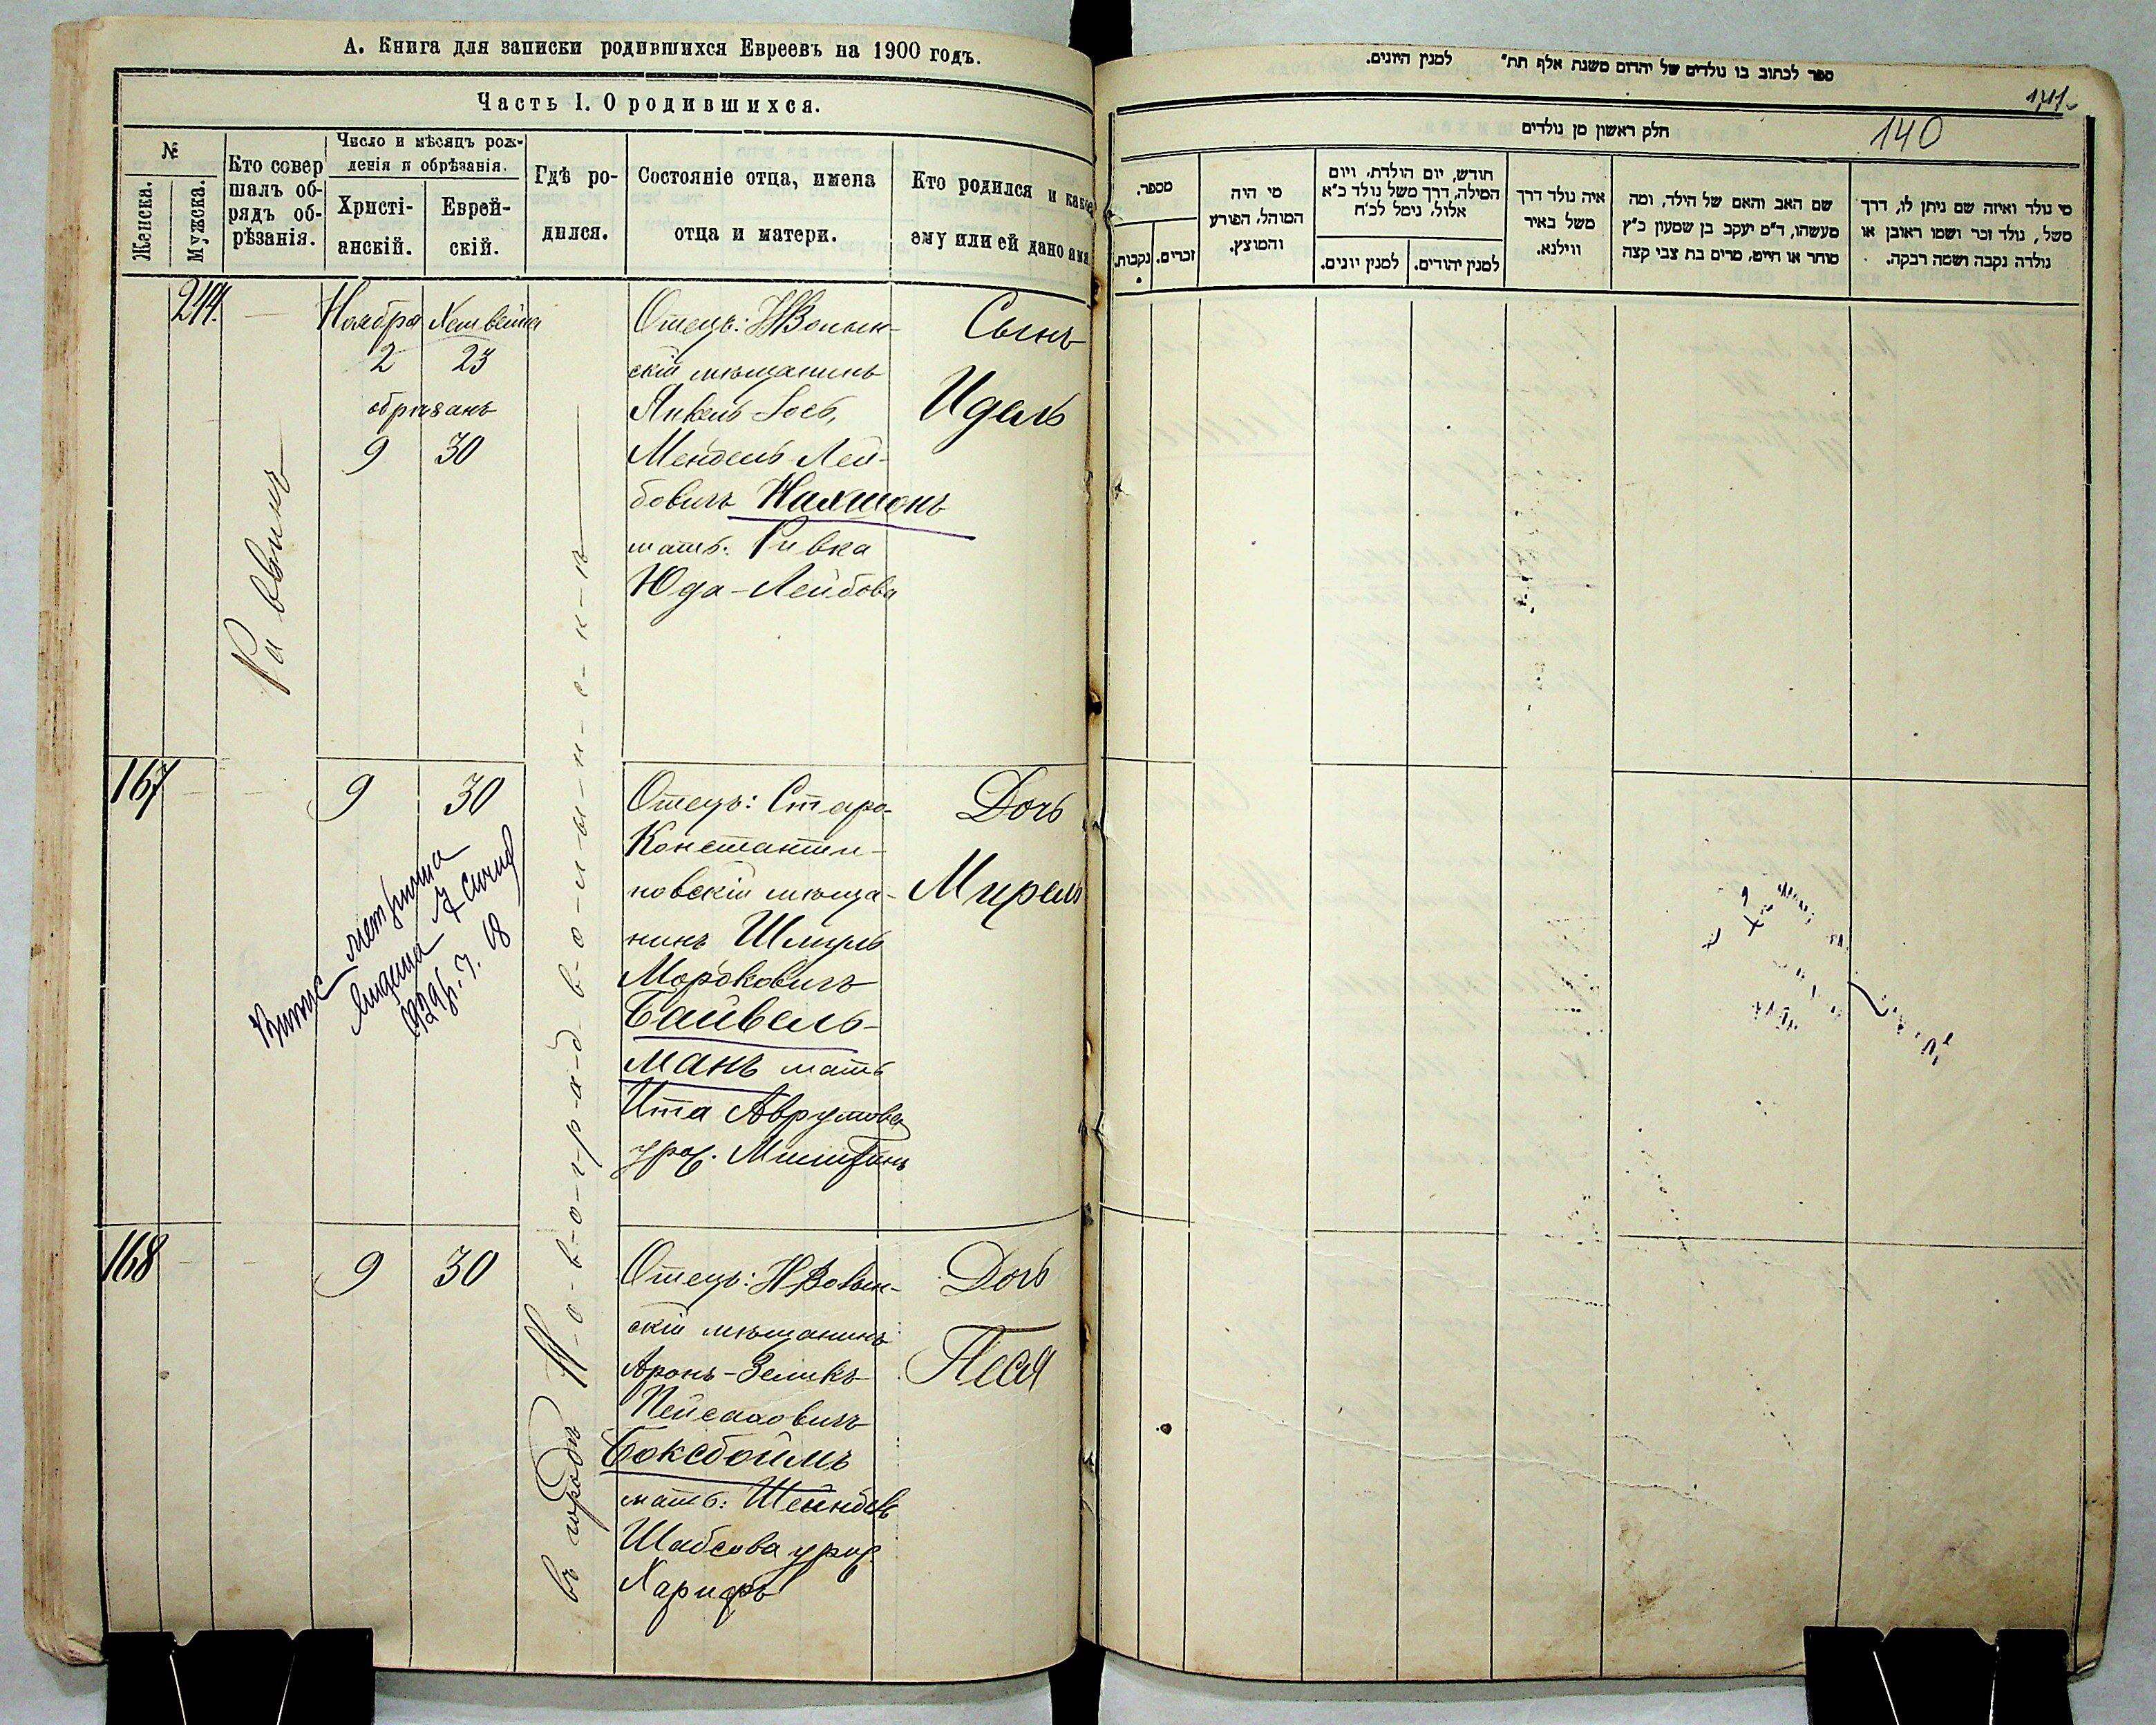 А. Книга для записки родившихся Евреевъ на 1900 годъ.
Часть I. О родившихся.
№
Женска.
Мужска.
Кто совер
шалъ об-
рядъ об-
рѣзанія.
Число и мѣсяцъ рож-
денія и обрѣзанія.
Христі-
анскій.
Еврей-
скій.
Гдѣ ро-
дился.
Состояніе отца, имена
отца и матери.
Кто родился и какое
ему или ей дано имя
244.
Раввинъ
Ноября Хешвейна
2 23
обрѣзанъ
9 30
въ городѣ Н-о-в-о-г-р-а-д в-о-л-ы-н-с-к-ѣ
Отецъ: НВолын-
скій мѣщанинъ
Янкель Іосъ,
Мендель Лей-
бовичъ Нахшонъ
мать: Ривка
Юда-Лейбова
Сынъ
Идель
167
9 30
метрики
1929 р. 7. 18
Отецъ: Старо-
Константи-
новскій мѣща-
нинъ Шмуль
Мордковичъ
Байвель-
манъ мать
Ита Аврумова
урож.
Дочь
Мирель
168
9 30
Отецъ: НВолын-
скій мѣщанинъ
Аронъ-Зеликъ
Пейсаховичъ
Боксбоймъ
мать: Шейндель
Шабсова урож.
Харифъ
Дочь
Песя
ספר לכתוב בו נולדים של יהדים משנת אלף תת״ למנין היונים.
141.
חלק ראשון מן נולדים
140
מספר.
נקבות.
זכרים.
מי היה
המוהל, הפורע
והמוצץ.
חודש, יום הולדת, ויום
המילה, דרך משל נולד כ״א
אלול, נימל לכ״ח
למנין יונים.
למנין יהודים.
איה נולד דרך
משל באיר
ווילנא.
שם האב והאם של הילד, ומה
מעשהו, ד״מ יעקב בן שמעון כ״ץ
סוחר או חייט, מרים בת צבי קצה
מי נולד ואיזה שם ניתן לו, דרך
משל, נולד זכר ושמו ראובן או
נולדה נקבה ושמה רבקה.